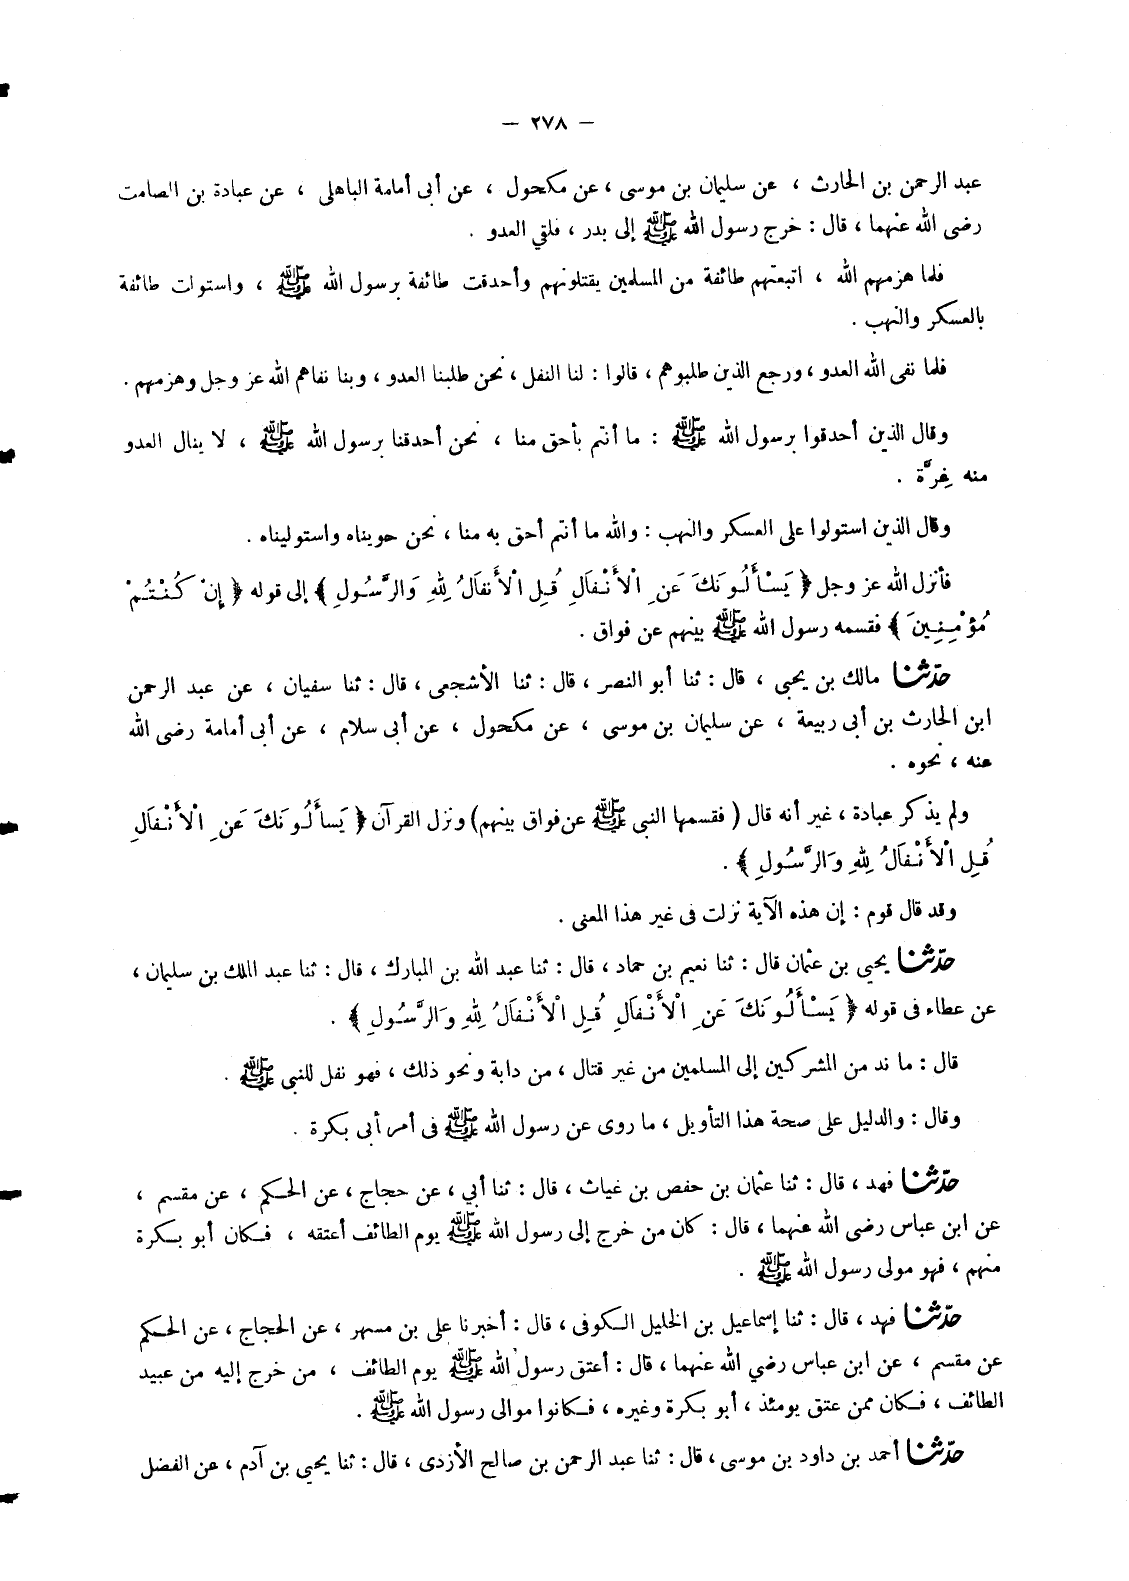 — ٢٧٨ —
عبد الرحمن بن الحارث ، عن سليمان بن موسى ، عن مكحول ، عن أبى أمامة الباهلى ، عن عبادة بن الصامت
رضى الله عنهما ، قال : خرج رسول الله ﷺ إلى بدر ، فلقي العدو .
فلما هزمهم الله ، اتبعتهم طائفة من المسلمين يقتلونهم وأحدقت طائفة برسول الله ﷺ ، واستولت طائفة
بالعسكر والنهب .
فلما نفى الله العدو ، ورجع الذين طلبوهم ، قالوا : لنا النفل ، نحن طلبنا العدو ، وبنا نفاهم الله عز وجل وهزمهم .
وقال الذين أحدقوا برسول الله ﷺ : ما أنتم بأحق منا ، نحن أحدقنا برسول الله ﷺ ، لا ينال العدو
منه غِرَّة .
وقال الذين استولوا على العسكر والنهب : والله ما أنتم أحق به منا ، نحن حويناه واستوليناه .
فأنزل الله عز وجل ﴿ يَسْأَلُونَكَ عَنِ الْأَنْفَالِ قُلِ الْأَنفَالُ لِلّٰهِ وَالرَّسُولِ ﴾ إلى قوله ﴿ إِنْ كُنْتُمْ
مُؤْمِنِينَ ﴾ فقسمه رسول الله ﷺ بينهم عن فواق .
حدّثنا مالك بن يحيى ، قال : ثنا أبو النصر ، قال : ثنا الأشجعى ، قال : ثنا سفيان ، عن عبد الرحمن
ابن الحارث بن أبى ربيعة ، عن سليمان بن موسى ، عن مكحول ، عن أبى سلام ، عن أبى أمامة رضى الله
عنه ، نحوه .
ولم يذكر عبادة ، غير أنه قال ( فقسمها النبى ﷺ عن فواق بينهم) ونزل القرآن ﴿ يَسأَلُونَكَ عَنِ الْأَنْفَالِ
قُلِ الْأَنْفَالُ لِلّٰهِ وَالرَّسُولِ ﴾ .
وقد قال قوم : إن هذه الآية نزلت فى غير هذا المعنى .
حدّثنا يحيي بن عثمان قال : ثنا نعيم بن حماد ، قال : ثنا عبد الله بن المبارك ، قال : ثنا عبد الملك بن سليمان ،
عن عطاء فى قوله ﴿ يَسْأَلُونَكَ عَنِ الْأَنْفَالِ قُلِ الْأَنْفَالُ لِلّٰهِ وَالرَّسُولِ ﴾ .
قال : ما ند من المشركين إلى المسلمين من غير قتال ، من دابة ونحو ذلك ، فهو نفل للنبى ﷺ .
وقال : والدليل على صحة هذا التأويل ، ما روى عن رسول الله ﷺ فى أمر أبى بكرة .
حدّثنا فهد ، قال : ثنا عثمان بن حفص بن غياث ، قال : ثنا أبي ، عن حجاج ، عن الحكم ، عن مقسم ،
عن ابن عباس رضى الله عنهما ، قال : كان من خرج إلى رسول الله ﷺ يوم الطائف أعتقه ، فكان أبو بكرة
منهم ، فهو مولى رسول الله ﷺ .
حدّثنا فهد ، قال : ثنا إسماعيل بن الخليل الكوفى ، قال : أخبرنا على بن مسهر ، عن الحجاج ، عن الحكم
عن مقسم ، عن ابن عباس رضي الله عنهما ، قال : أعتق رسول الله ﷺ يوم الطائف ، من خرج إليه من عبيد
الطائف ، فكان ممن عتق يومئذ ، أبو بكرة وغيره ، فكانوا موالى رسول الله ﷺ .
حدّثنا أحمد بن داود بن موسى ، قال : ثنا عبد الرحمن بن صالح الأزدى ، قال : ثنا يحيي بن آدم ، عن الفضل